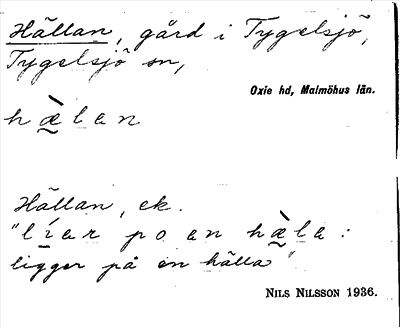 Hällan, gård i Tygelsjö,
Tygelsjö sn,
Oxie hd, Malmöhus län.
hæ̀lan
Hällan, ek.
"líar po en hæ̀la:
ligger på en hälla"
NILS NILSSON 1936.